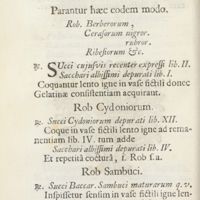 Parantur hæc eodem modo.
Rob. Berberorum,
Cerasorum nigror.
rubror.
Ribesiorum &c.
℞. Succi cujusvis recenter expressi lib. II.
Sacchari albissimi depurati lib. I.
Coquantur lento igne in vase fictili donec
Gelatinæ consistentiam acquirant.
Rob Cydoniorum.
℞. Succi Cydoniorum depurati lib. XII.
Coque in vase fictili lento igne ad rema-
nentiam lib. IV. tum adde
Sacchari albissimi depurati lib. IV.
Et repetitâ cocturâ, f. Rob s.a.
Rob Sambuci.
℞. Succi Baccar. Sambuci maturarum q.v.
Inspissetur sensim in vase fictili igne len-